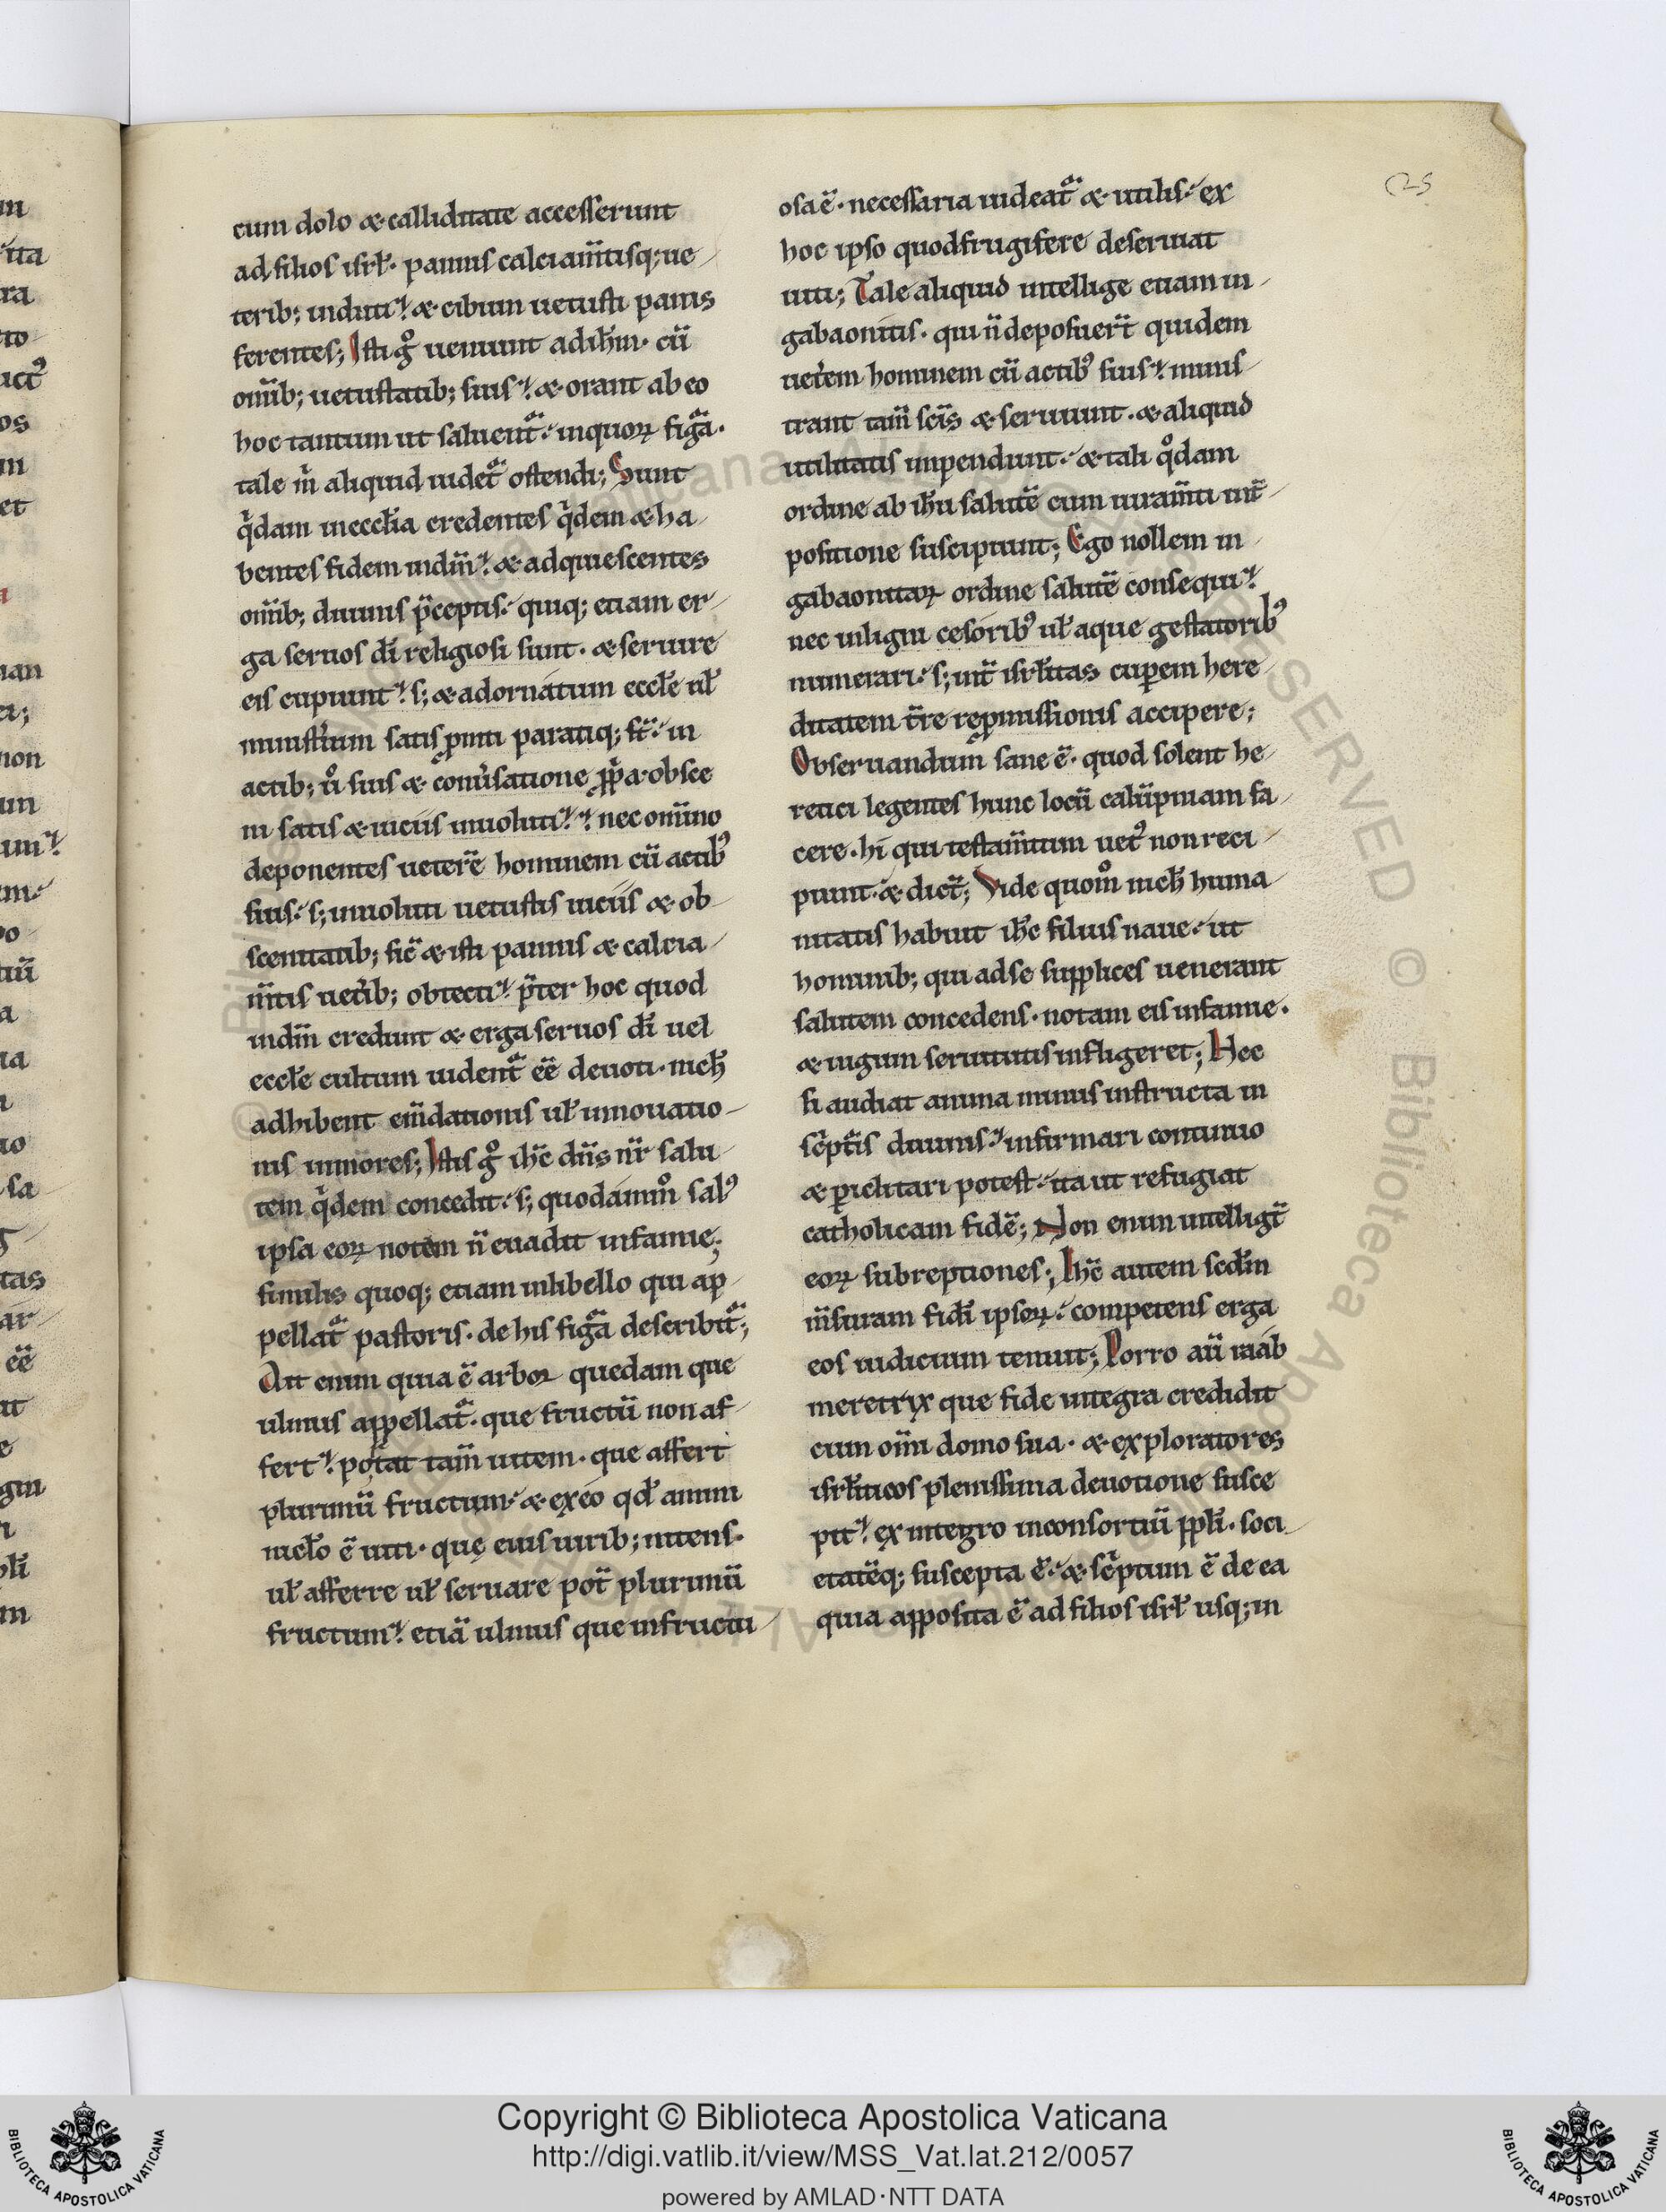 25
cum dolo & calliditate accesserunt
ad filios isrł· pannis calciam̄tisq; ue
terib; induti· & cibum uetusti panis
ferentes; Isti gͦ ueniunt ad ih̄m· cū
om̄ib; uetustatib; suis· & orant ab eo
hoc tantum ut saluent̃· in quoꝝ fig̃a·
tale m̊ aliquid uidet̃ ostendi; Sunt
q̊dam in eccƚia credentes q̊dem & ha
bentes fidem in dn̄m· & adquiescentes
om̄ib; diuinis p̄ceptis· quiq; etiam er
ga seruos dī religiosi sunt· & seruire
eis cupiunt· s; & ad ornatum eccƚe uƚ
ministerium satis prompti paratiq; st̄· in
actib; ů suis & conuersatione ꝓp̃a· obsce
ni satis & uiciis inuoluti· nec omīno
deponentes ueterē hominem cū actibꝰ
suis· s; inuoluti uetustis uiciis & ob
scenitatib; sic̄ & isti pannis & calcia
m̄tis ueteribꝫ obtecti· p̄ter hoc quod
in dn̄m credunt & erga seruos dī uel
eccƚe cultum uident̃ eē deuoti· nichꝉ
adhibent em̄dationis uƚ innouatio
nis in mores; Istis gͦ ih̄c dn̄s nr̄ salu
tem q̊dem concedit· s; quodammͦ salꝰ
ipsa eoꝝ notem n̄ euadit infamie;
similis quoq; etiam in libello qui ap
pellat̃ pastoris· de his fig̃a describit̃;
Ait enim quia ē arbor quedam que
ulmus appellat̃· que fructū non af
fert· portat tam̄ uitem· que affert
plurimū fructum· & ex eo qd̄ animi
nicƚo ē uiti· que eius uirib; nitens·
uƚ afferre uƚ seruare pot̄ plurimū
fructum· etiā ulmus que infructu
osa ē· necessaria uideat̃ & utilis· ex
hoc ipso quod frugifere deseruiat
uiti; Tale aliquid intellige etiam in
gabaonitis· qui n̄ deposuer̄t quidem
ueterem hominem cū actibꝰ suis· minis
trant tam̄ sc̄is & seruiunt· & aliquid
utilitatis impendunt· & tali q̊dam
ordine ab ih̄u salutē cum iuram̄ti int̄
positione suscipiunt; Ego nollem in
gabaonitaꝝ ordine salutē consequi·
nec in ligni cesoribꝰ uƚ aque gestatoribꝰ
numerari· s; int̄ isrƚitas cuperem here
ditatem t̄re repromissionis accipere;
Obseruandum sane ē· quod solent he
retici legentes hunc locū calūpniam fa
cere· hi qui testam̄tum uetꝰ non reci
piunt· & dict̄; Vide quomͦ nichꝉ huma
nitatis habuit ih̄c filius naue· ut
hominib; qui ad se supplices uenerant
salutem concedens· notam eis infamie·
& iugum seruitutis infligeret; Hec
si audiat anima minus instructa in
sc̊pt̃is diuinis· infirmari continuo
& periclitari potest· ita ut refugiat
catholicam fidē; Non enim intelligt̄
eoꝝ subreptiones; Ih̄c autem scd̄m
m̄suram fidī ipsoꝝ· competens erga
eos iudicium tenuit; Porro aū raab
meretrix que fide integra credidit
cum om̄i domo sua· & exploratores
isrƚiticos plenissima deuotione susce
pit· ex integro in consortiū ppƚi· soci
etatēq; suscepta ē· & sc̊ptum ē de ea
quia apposita ē ad filios isrƚ usq; in
Copyright © Biblioteca Apostolica Vaticana
http://digi.vatlib.it/view/MSS_Vat.lat.212/0057
powered by AMLAD·NTT DATA
BIBLIOTECA APOSTOLICA VATICANA
BIBLIOTECA APOSTOLICA VATICANA